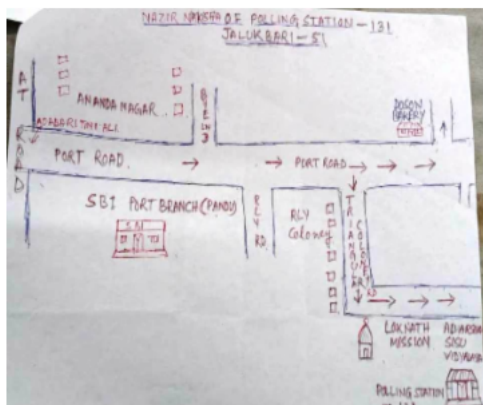 NAZIR NAKSHA OF POLLING STATION - 131
JALUKBARI - 51
AT ROAD
ANANDA NAGAR
ADABARI TINI ALI
DOSON BAKERY
PORT ROAD
PORT ROAD
SBI PORT BRANCH (PANDU)
SBI
RLY RD
RLY
Coloney
TRIANGULAR
COLONEY
RD
LOKNATH
MISSION
SISU
POLLING STATION